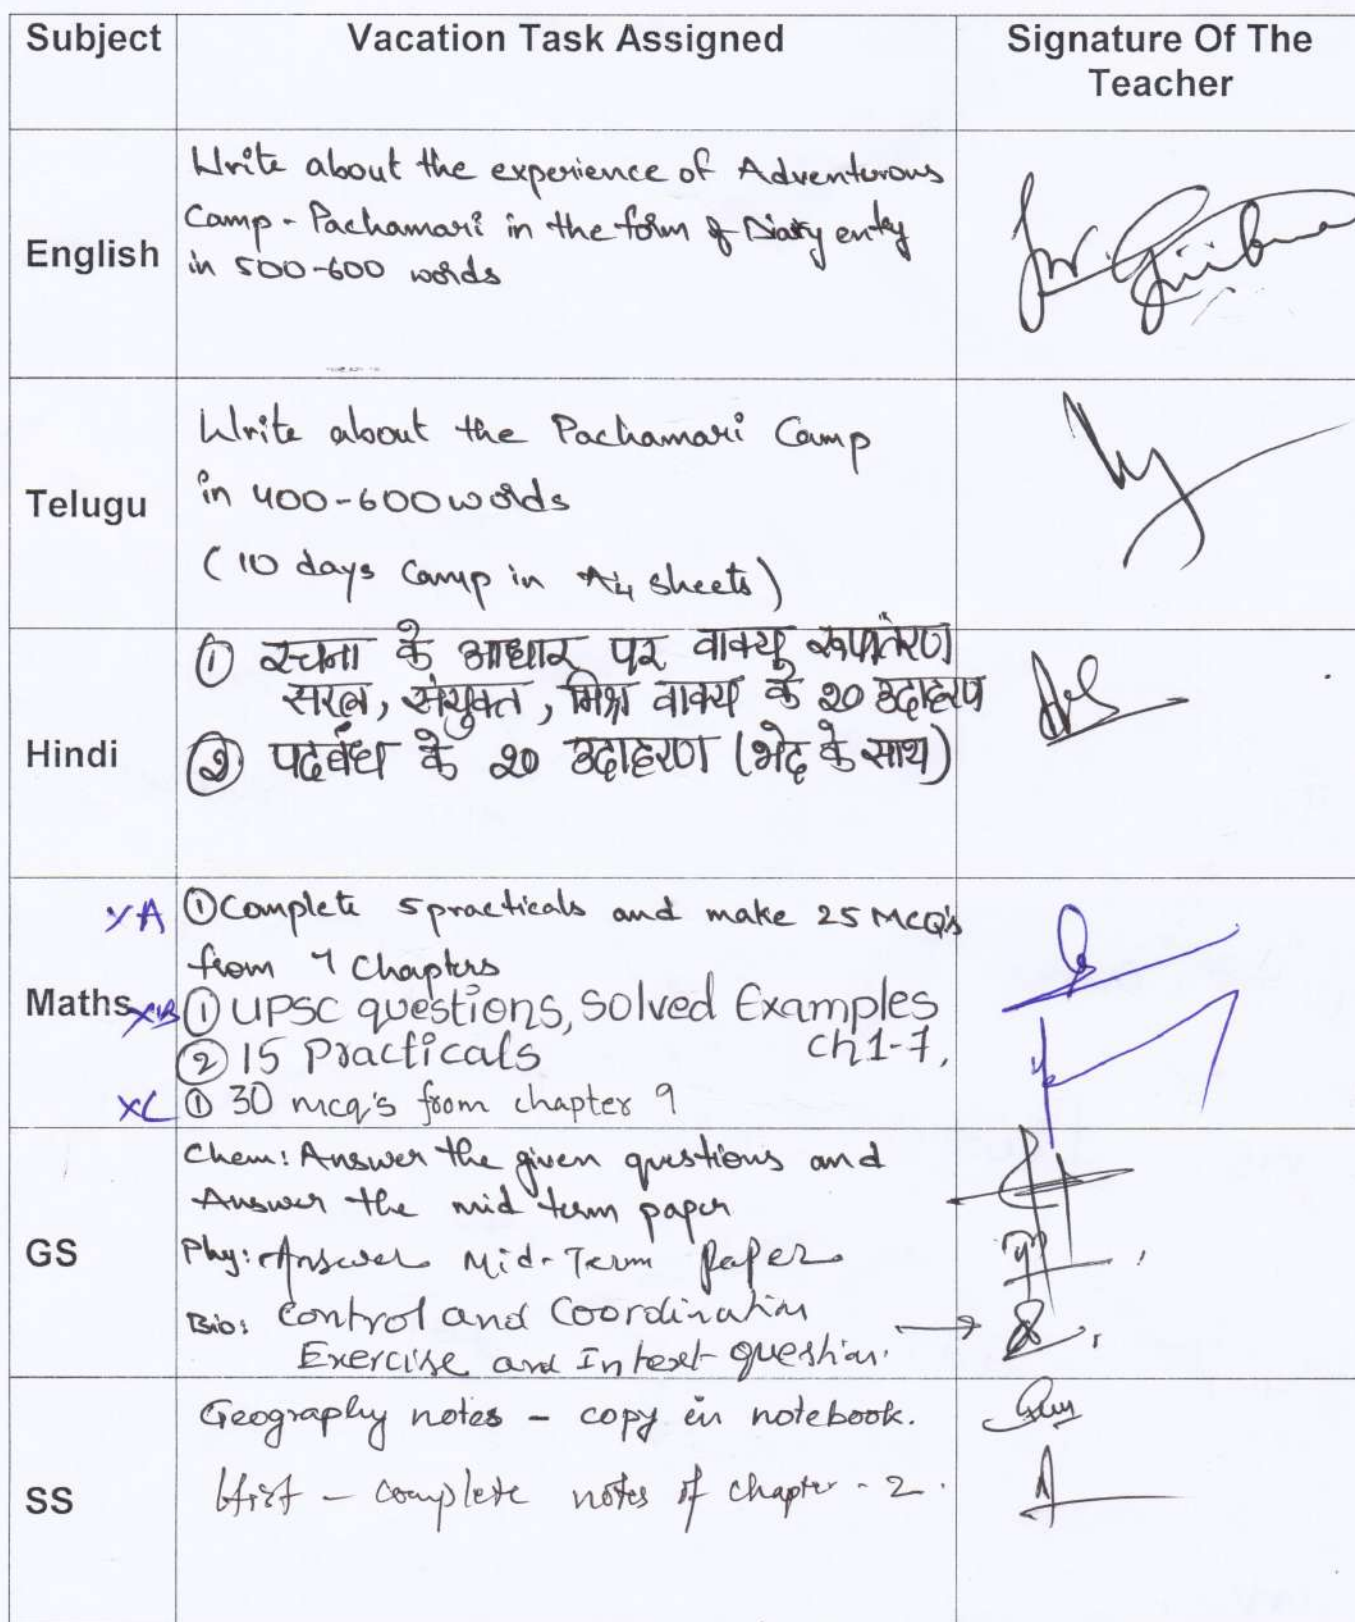 Subject
Vacation Task Assigned
Signature Of The
Teacher
English
Write about the experience of Adventurous
Camp - Pachamari in the form of Diary entry
in 500-600 words
Telugu
Write about the Pachamari Camp
in 400-600 words
(10 days Camp in A4 sheets)
Hindi
① रचना के आधार पर वाक्य रूपांतरण
सरल, संयुक्त, मिश्र वाक्य के २० उदाहरण
② पदबंध के २० उदाहरण (भेद के साथ)
Maths
XA ① Complete 5 practicals and make 25 MCQ's
from 7 Chapters
XB ① UPSC questions, Solved Examples
Ch 1-7,
② 15 Practicals
XC ① 30 mcq's from chapter 9
GS
Chem: Answer the given questions and
Answer the mid term paper
Phy: Answer Mid-Term Paper
Bio: Control and Coordination
Exercise and Intext question.
SS
Geography notes - copy in notebook.
Hist - complete notes of chapter - 2.